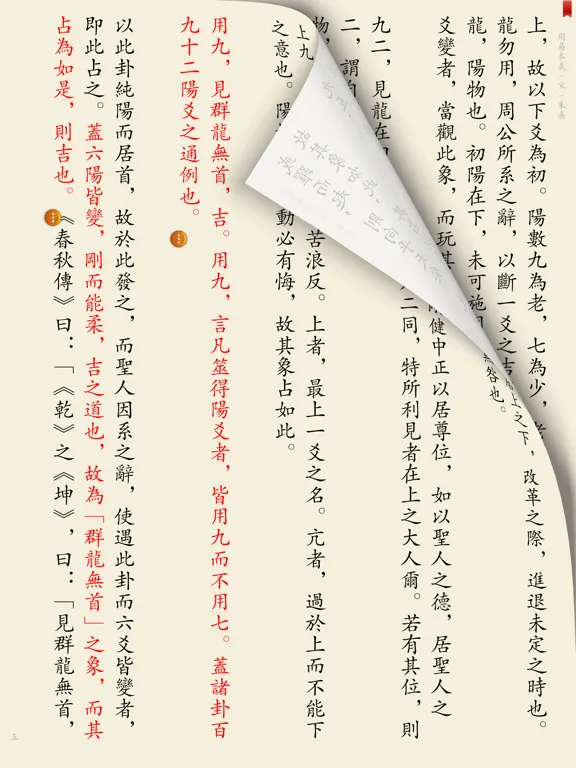 周易本義·宋·朱熹
上，故以下爻為初。陽數九為老，七為少，
上之下，改革之際，進退未定之時也。
龍勿用，周公所系之辭，以斷一爻之吉
無咎也。
龍，陽物也。初陽在下，未可施
爻變者，當觀此象，而玩其
剛健中正以居尊位，如以聖人之德，居聖人之
二同，特所利見者在上之大人爾。若有其位，則
九二，見龍在
二，謂
上九
物 苦浪反。上者，最上一爻之名。亢者，過於上而不能下
之意也。陽 動必有悔，故其象占如此。
用九，見群龍無首，吉。用九，言凡筮得陽爻者，皆用九而不用七。蓋諸卦百
九十二陽爻之通例也。
以此卦純陽而居首，故於此發之，而聖人因系之辭，使遇此卦而六爻皆變者，
即此占之。蓋六陽皆變，剛而能柔，吉之道也，故為「群龍無首」之象，而其
占為如是，則吉也。《春秋傳》曰：「《乾》之《坤》，曰：「見群龍無首，
五